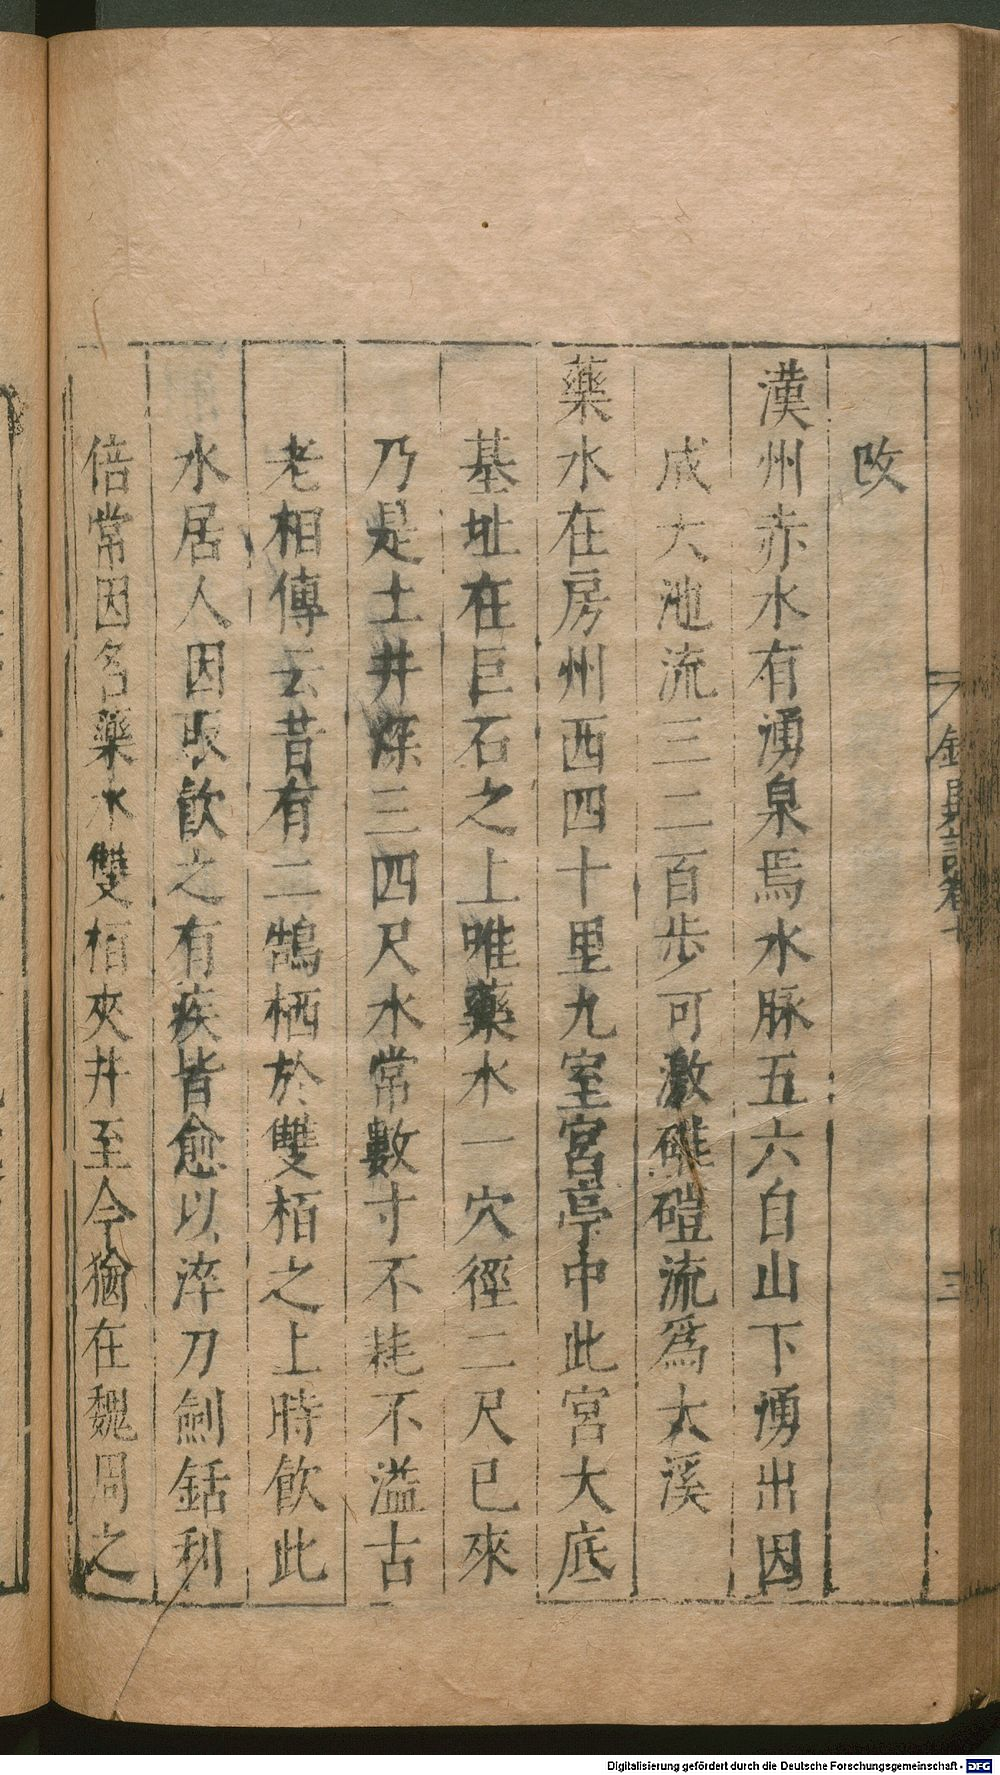 改
漢州赤水有湧泉焉水脉五六自山下湧出因
成大池流三二百步可激磑流為大溪
藥水在房州西四十里九室宮亭中此宮大底
基址在巨石之上唯藥水一穴徑二尺已來
乃是土井深三四尺水常數寸不耗不溢古
老相傳云昔有二鵠栖於雙栢之上時飲此
水居人因取飲之有疾皆愈以淬刀劍銛利
倍常因名藥水雙栢夾井至今猶在魏周之
錄異記卷七
三
Digitalisierung gefördert durch die Deutsche Forschungsgemeinschaft - DFG